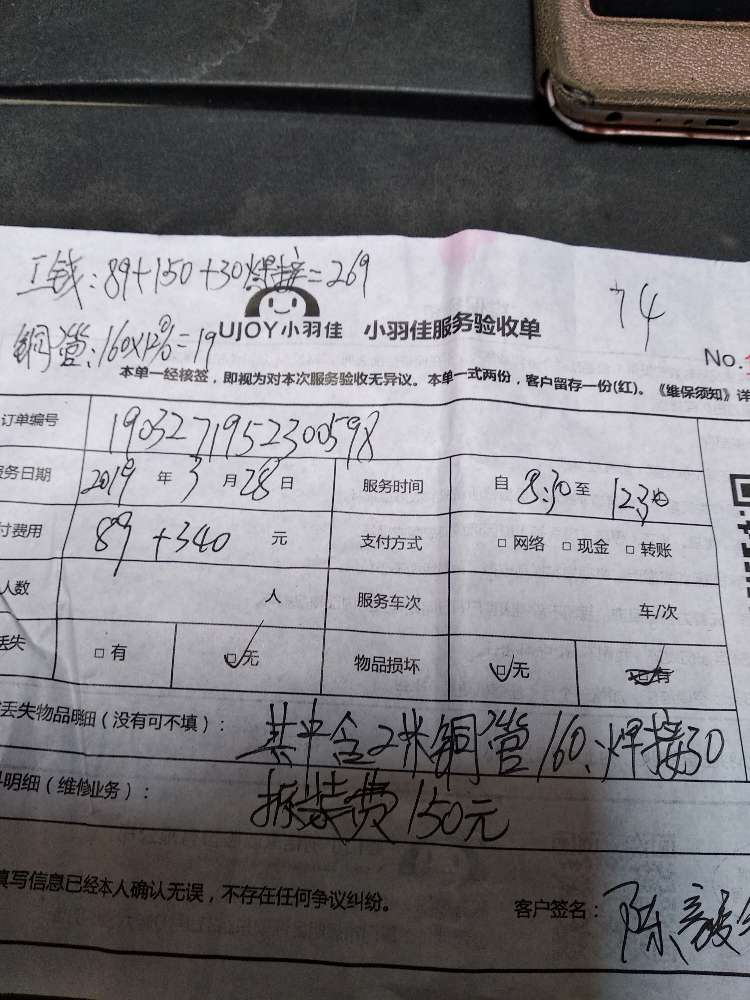 工钱：89+150+30焊接=269
74
铜管：160×12%=19
UJOY小羽佳 小羽佳服务验收单
No.
本单一经核签，即视为对本次服务验收无异议。本单一式两份，客户留存一份(红)。《维保须知》详
订单编号 1903271952300598
服务日期 2019 年 3 月 28 日 服务时间 自 8:30 至 12:30
付费用 89+340 元 支付方式 □ 网络 □ 现金 □ 转账
人数 人 服务车次 车/次
丢失 □ 有 ☑ 无 物品损坏 ☑ 无 □ 有
丢失物品明细（没有可不填）： 其中含2米铜管160、焊接30
明细（维修业务）： 拆装费150元
填写信息已经本人确认无误，不存在任何争议纠纷。
客户签名： 陈毅